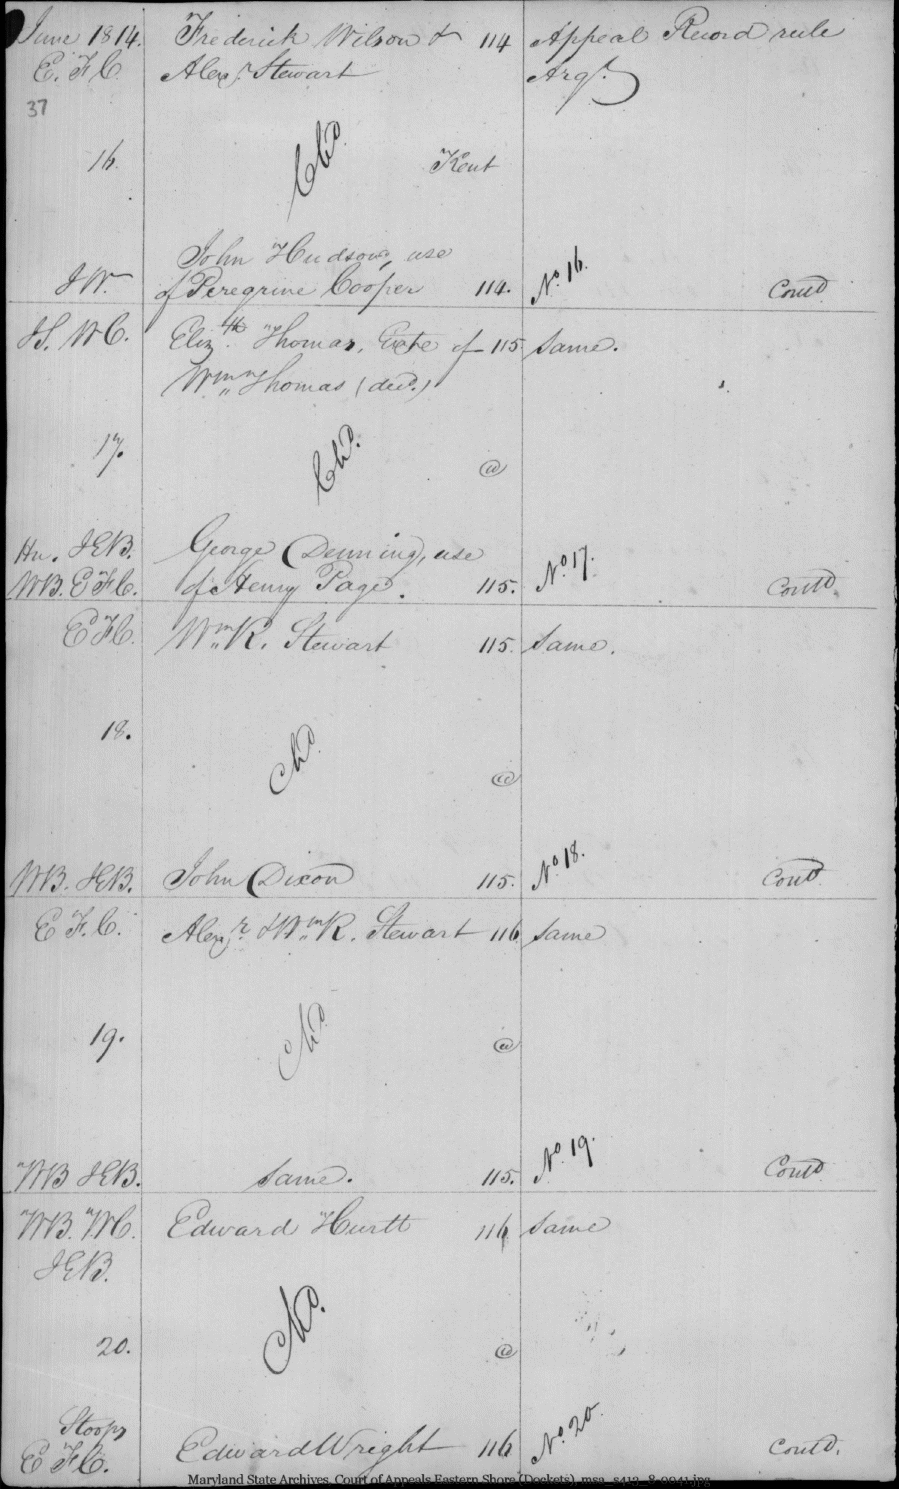 June 1814. Frederick Wilson & 114 Appeal Record rule
E. F C. Alexr. Stewart Argt.
37
16. Chd. Kent
John Hudson, use
JW. of Peregrine Cooper 114. No. 16. Contd.
JS. WC. Elizth. Thomas, Exte of 115 Same.
Wm. Thomas (decd.)
17. Chd. @
Hn. JEB. George Denning, use
WB. EFC. of Henry Page. 115. No. 17. Contd.
EFC. Wm. R. Stewart 115. Same.
18. Chd. @
WB. JEB. John Dixon 115. No. 18. Contd.
E F. C. Alexr. & Wm. R. Stewart 116 Same
19. Chd. @
WB JEB. Same. 115. No. 19. Contd.
WB. WC. Edward Hurtt 116 Same
JEB.
20. Chd. @
Stoops
E FC. Edward Wright 116 No. 20. Contd.
Maryland State Archives, Court of Appeals Eastern Shore (Dockets), msa_s412_8-0041.jpg